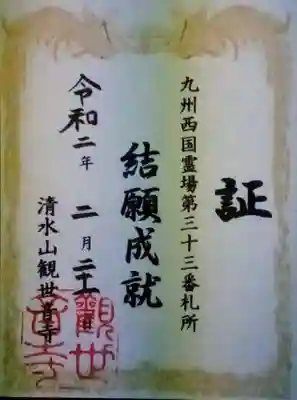 証
九州西国霊場第三十三番札所
結願成就
令和二年 二月二十 日
清水山観世音寺
観世音寺